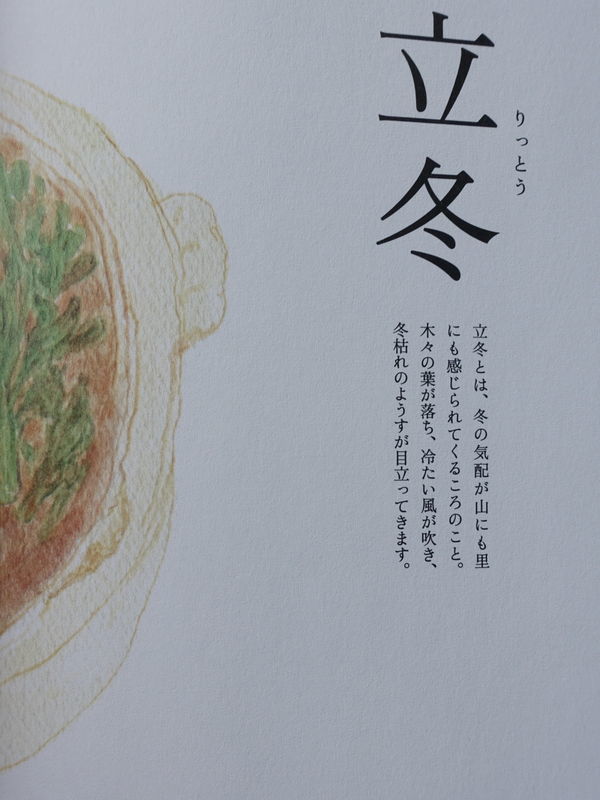 立冬
りっとう
立冬とは、冬の気配が山にも里
にも感じられてくるころのこと。
木々の葉が落ち、冷たい風が吹き、
冬枯れのようすが目立ってきます。